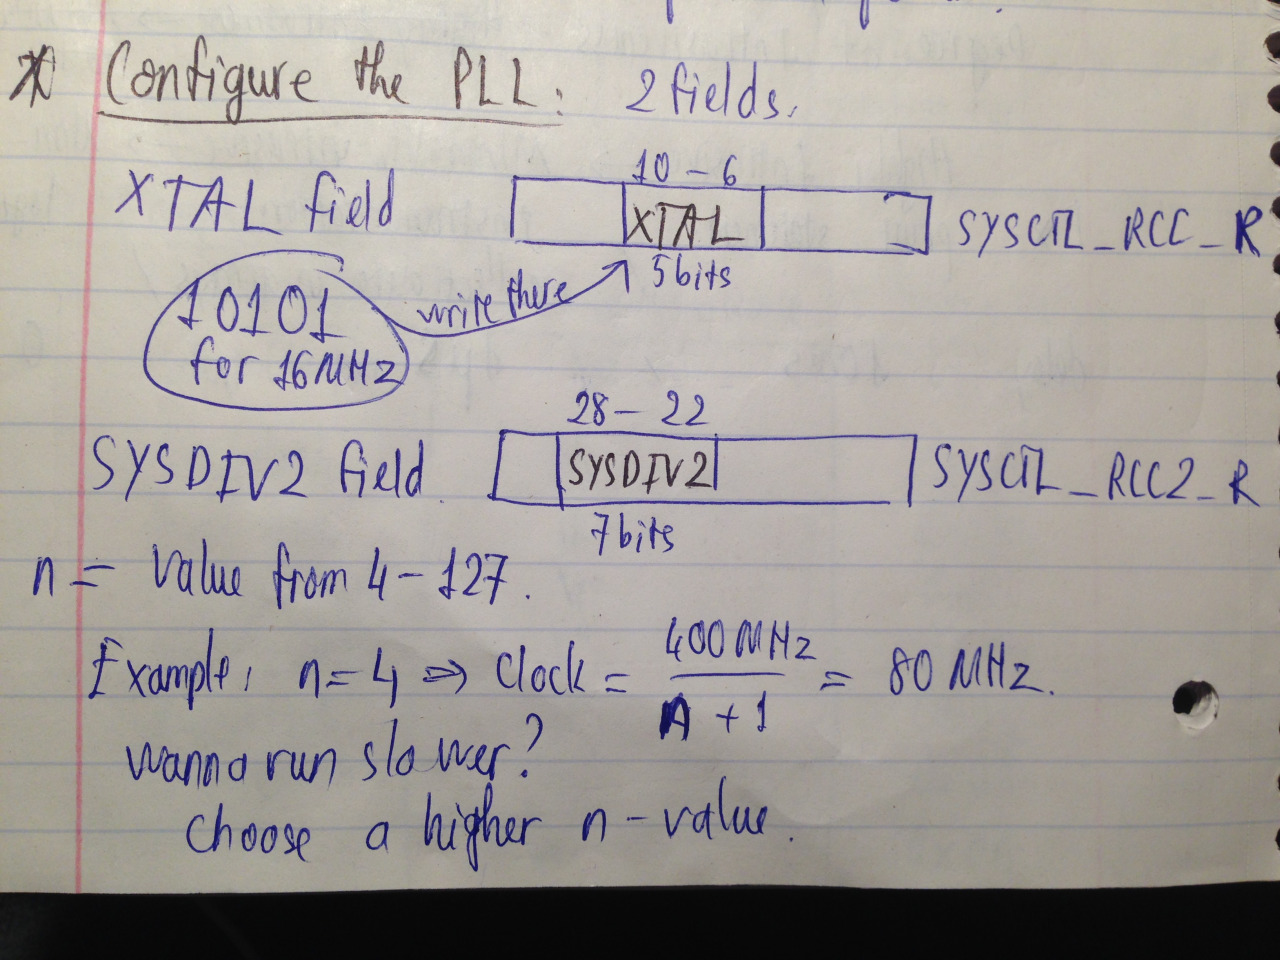 Configure the PLL: 2 fields.
10 - 6
XTAL field XTAL SYSCTL_RCC_R
5 bits
write there
10101
for 16MHz
28 - 22
SYSDIV2 field. SYSDIV2 SYSCTL_RCC2_R
7 bits
n = Value from 4 - 127.
Example: n = 4 => Clock = 400 MHz / n + 1 = 80 MHz.
wanna run slower?
Choose a higher n - value.